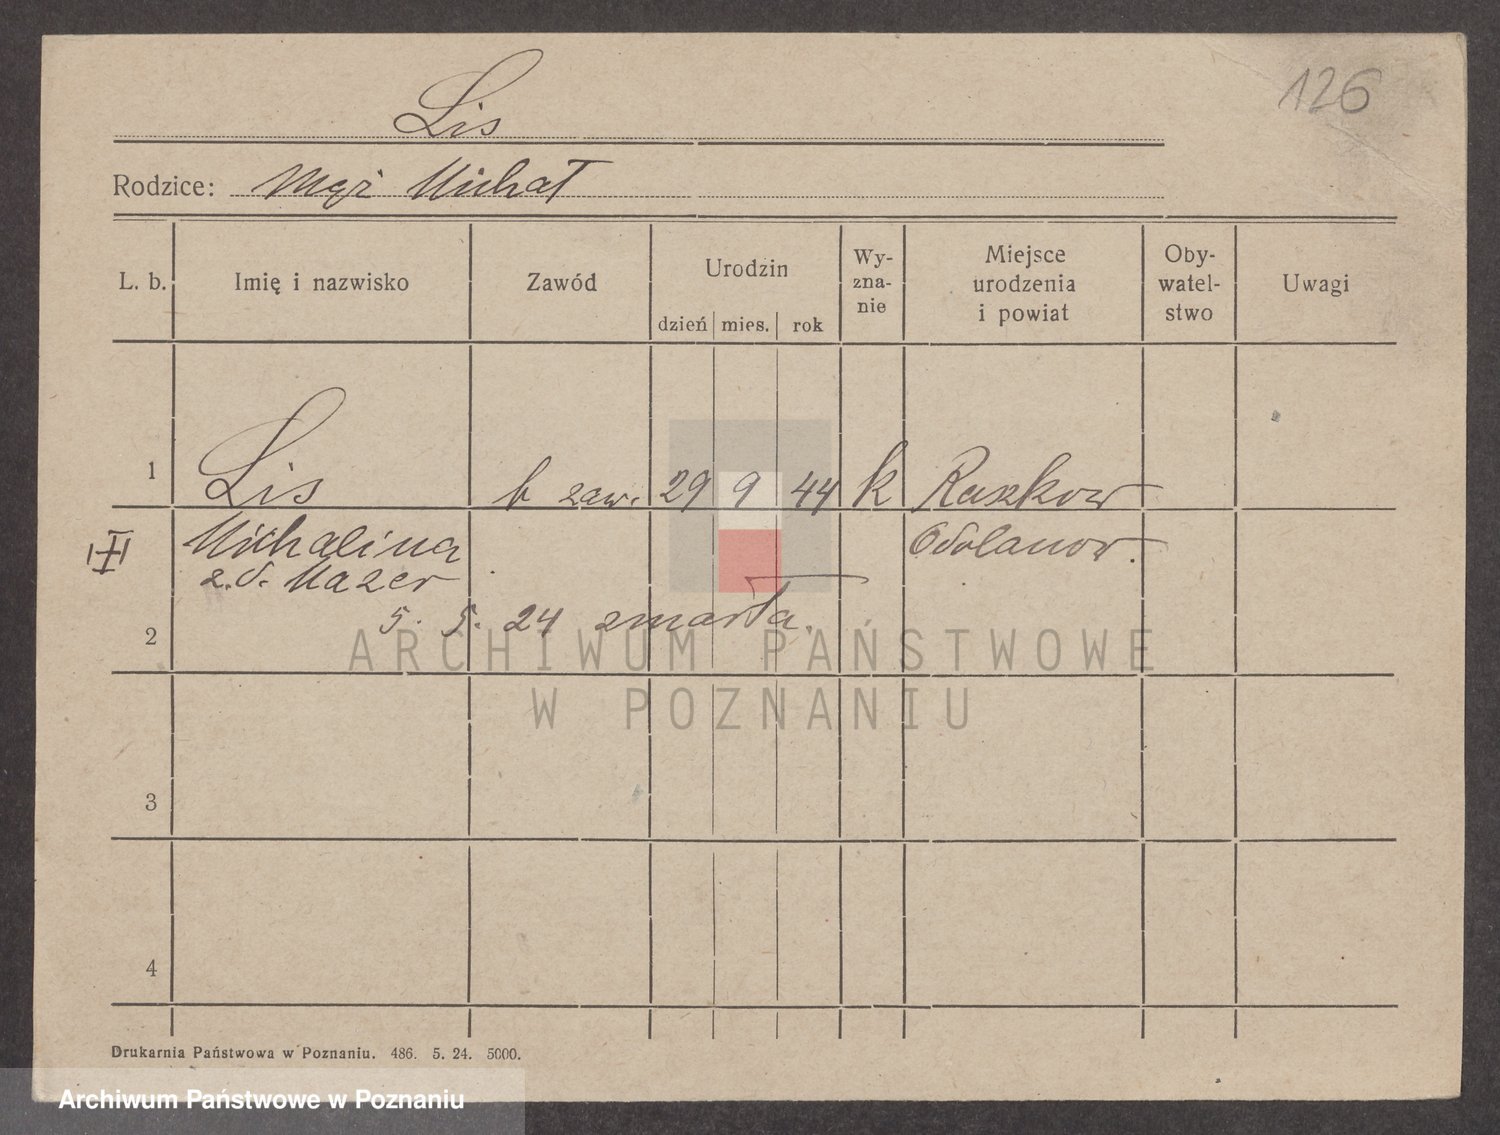 126
Lis
Rodzice: Mąż Michał
L. b. Imię i nazwisko Zawód Urodzin dzień mies. rok Wy-zna-nie Miejsce urodzenia i powiat Oby-watel-stwo Uwagi
1 Lis b zaw. 29 9 44 k Raszkow
III Michalina Odolanow.
z. d. Mazer
5. 5. 24 zmarła.
2
ARCHIWUM PAŃSTWOWE
W POZNANIU
3
4
Drukarnia Państwowa w Poznaniu. 486. 5. 24. 5000.
Archiwum Państwowe w Poznaniu